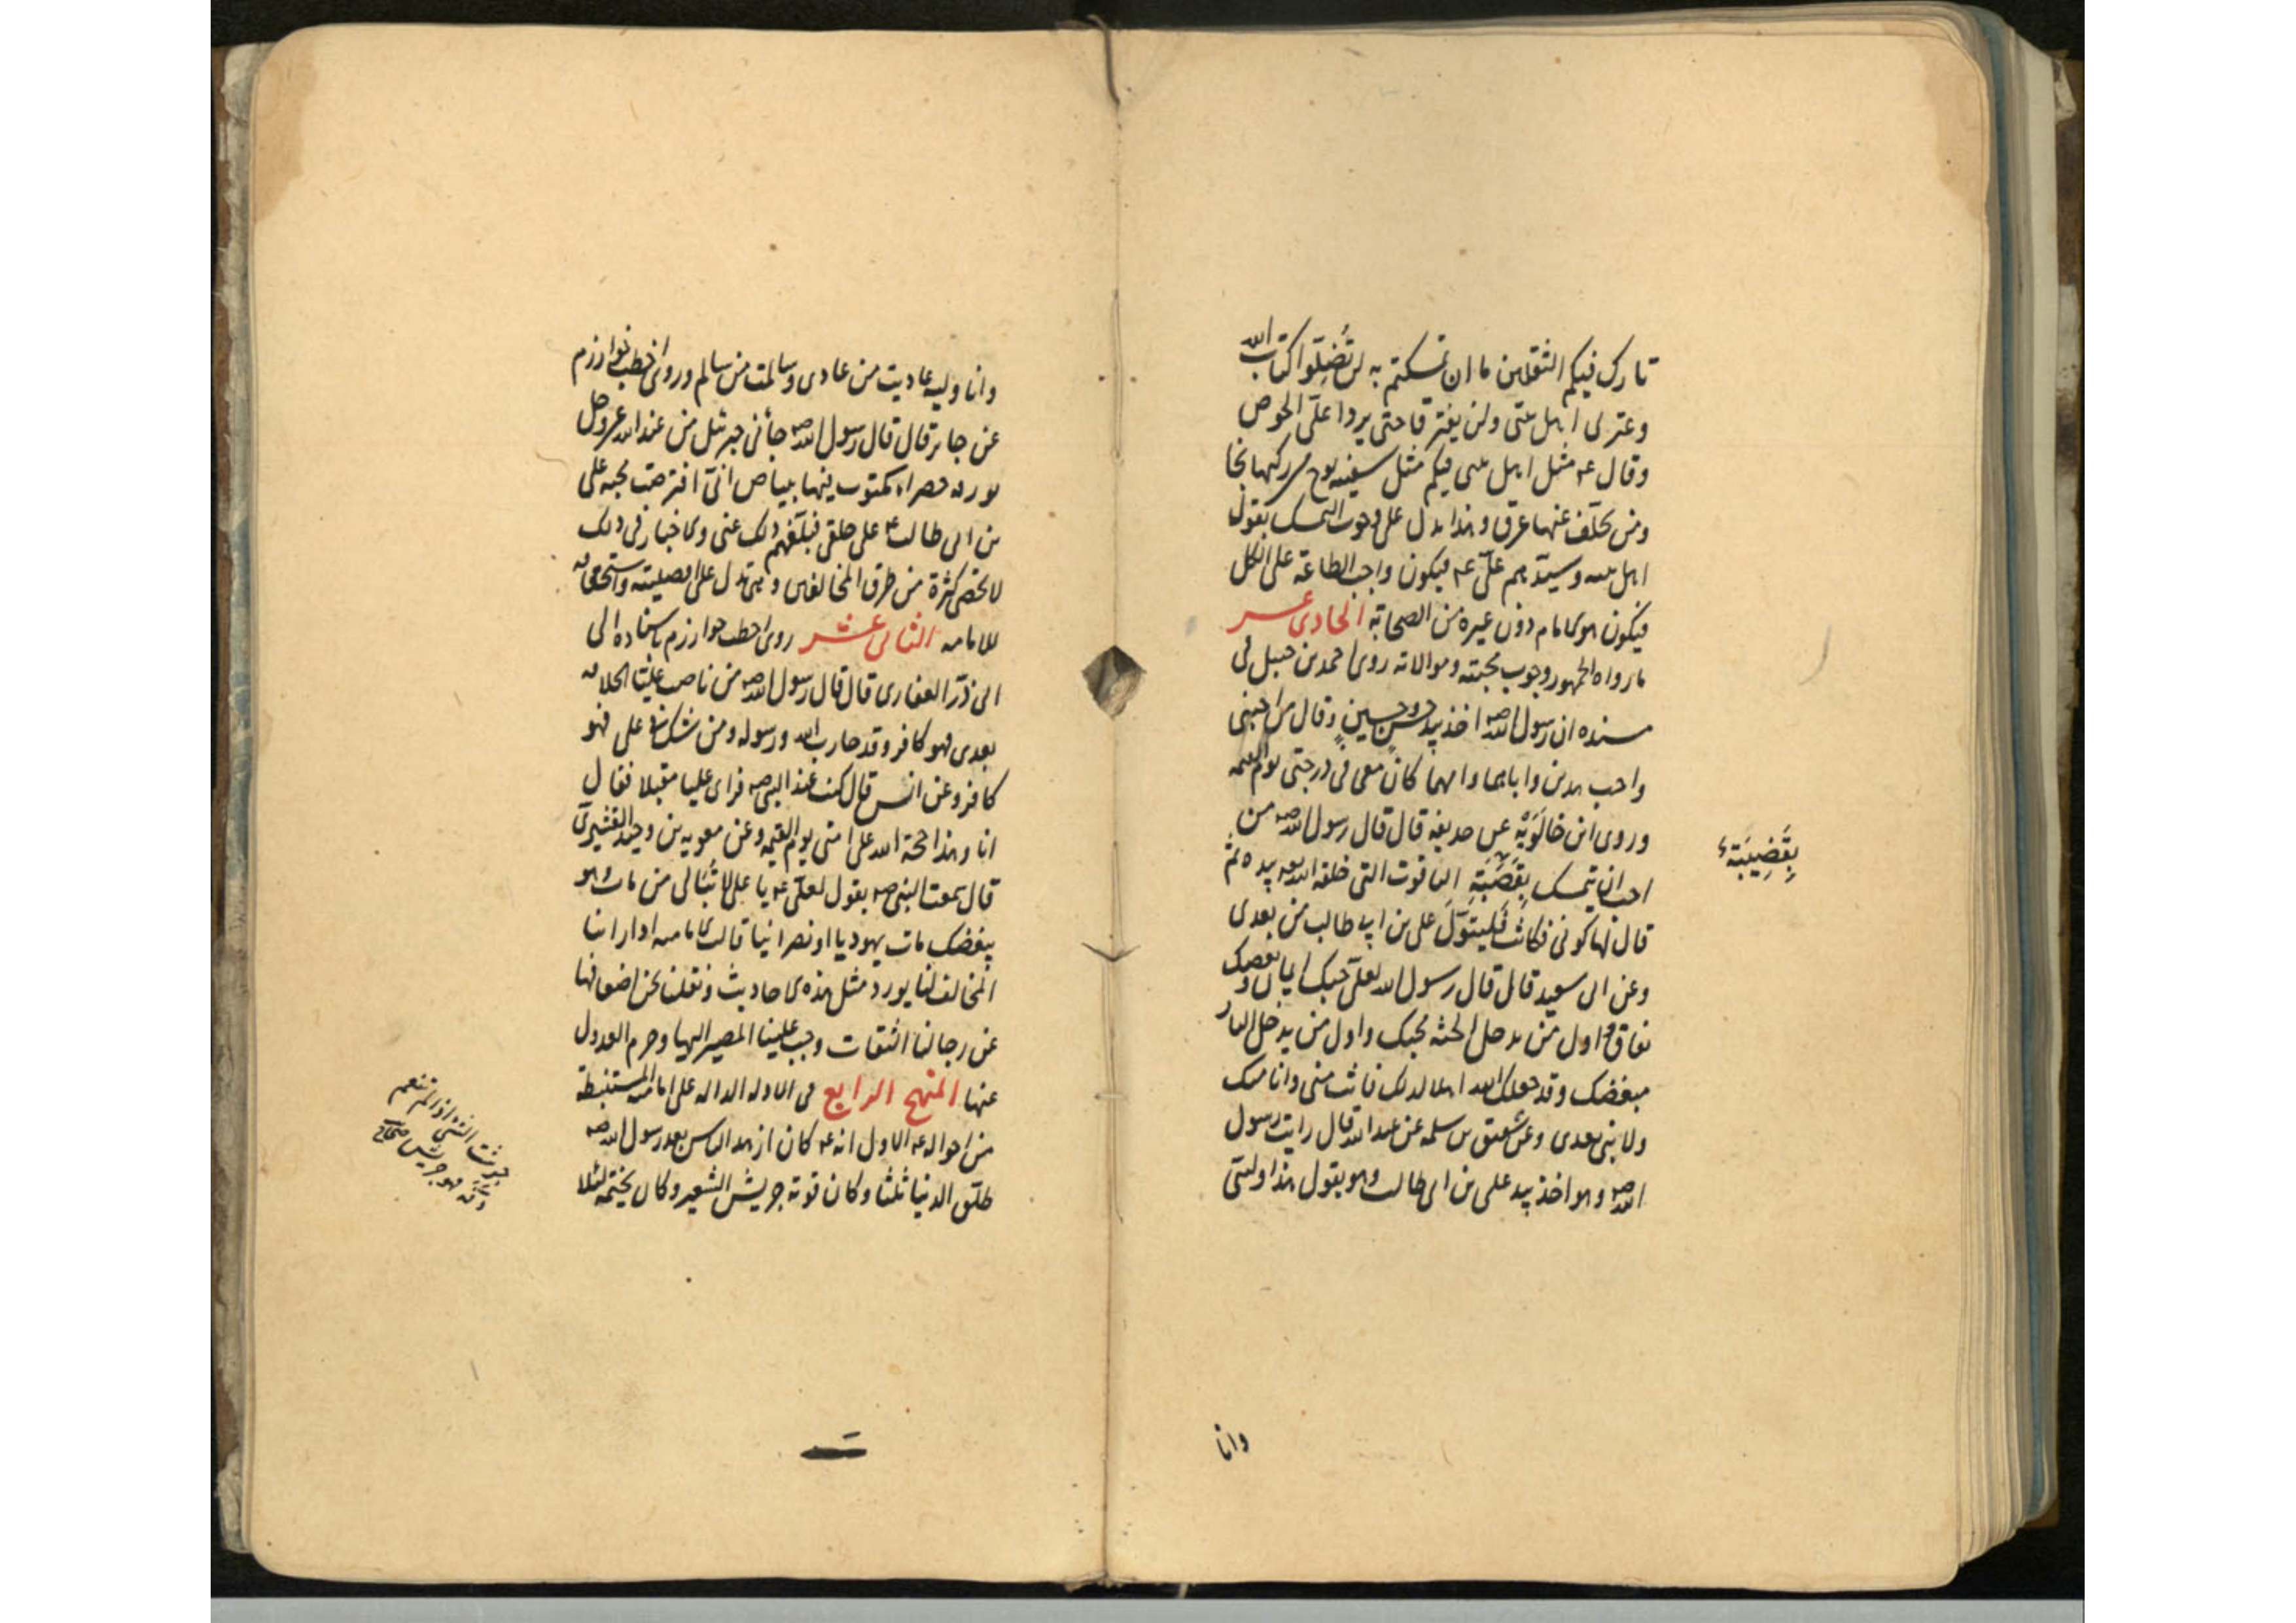 تارك فيكم الثقلين ما ان تمسكتم به لن تضلوا كتاب الله
وعترتى اهل بيتى ولن يفترقا حتى يردا علىّ الحوض
وقال عم مثل اهل بيتى فيكم مثل سفينه نوح من ركبها نجا
ومن تخلف عنها غرق وهذا يدل على وجوب التمسك بقول
اهل بيته وسيدهم علىّ عم فيكون واجب الطاعة على الكل
فيكون هو الامام دون غيره من الصحابة الحادى عشر
ما رواه الجمهور وجوب محبته وموالاته روى احمد بن حنبل فى
مسنده ان رسول الله صم اخذ بيد حسن وحسين وقال من احبنى
واحب هذين واباهما وامهما كان معى فى درجتى يوم القيمه
وروى ابن خالويه عن حذيفه قال قال رسول الله صم من
احب ان يتمسك بقصبة الياقوت التى خلقه الله بيده ثم
قال لها كونى فكانت فليتول على بن ابي طالب من بعدى
وعن ابى سعيد قال قال رسول الله لعلى حبك ايمان وبغضك
نفاق واول من يدخل الجنه محبك واول من يدخل النار
مبغضك وقد جعلك الله اهلا لذلك فانت منى وانا منك
ولا نبى بعدى وعن شقيق بن سلمه عن عبد الله قال رايت رسول
الله صم وهو اخذ بيد على بن ابى طالب وهو يقول هذا وليى
بقضيبة
وانا
وانا وليه عاديت من عادى وسالمت من سالم وروى اخطب خوارزم
عن جابر قال قال رسول الله صم جأنى جبرئيل من عند الله عز وجل
بورقه خضراء مكتوب فيها ببياض انى افترضت محبه على
بن ابى طالب عم على خلقى فبلغهم ذلك عنى والاخبار فى ذلك
لا تحصى كثرة من طرق المخالفين وهى تدل على افضليته واستحقاقه
للامامه الثانى عشر روى اخطب خوارزم باسناده الى
ابى ذرّ الغفارى قال قال رسول الله صم من ناصب عليّا الخلافه
بعدى فهو كافر وقد حارب الله ورسوله ومن شك فى على فهو
كافر وعن انس قال كنت عند النبى صم فراى عليا مقبلا فقال
انا وهذا حجة الله على امتى يوم القيمه وعن معويه بن وحيد القشيرىّ
قال سمعت النبى صم يقول لعلى عم يا على لا تبالى من مات وهو
يبغضك مات يهوديا او نصرانيا قالت الاماميه اذا راينا
المخالف لنا يورد مثل هذه الاحاديث ونقلنا نحن اضعافها
عن رجالنا الثقات وجب علينا المصير اليها وحرم العدول
عنها المنهج الرابع فى الادله الداله على امامته المستنبطة
من احواله عم الاول انه عم كان ازهد الناس بعد رسول الله صم
طلق الدنيا ثلثا وكان قوته جريش الشعير وكان يختمه لئلا
جرشت الشئ اذا لم تنعم
دقه فهو جريش صحاح